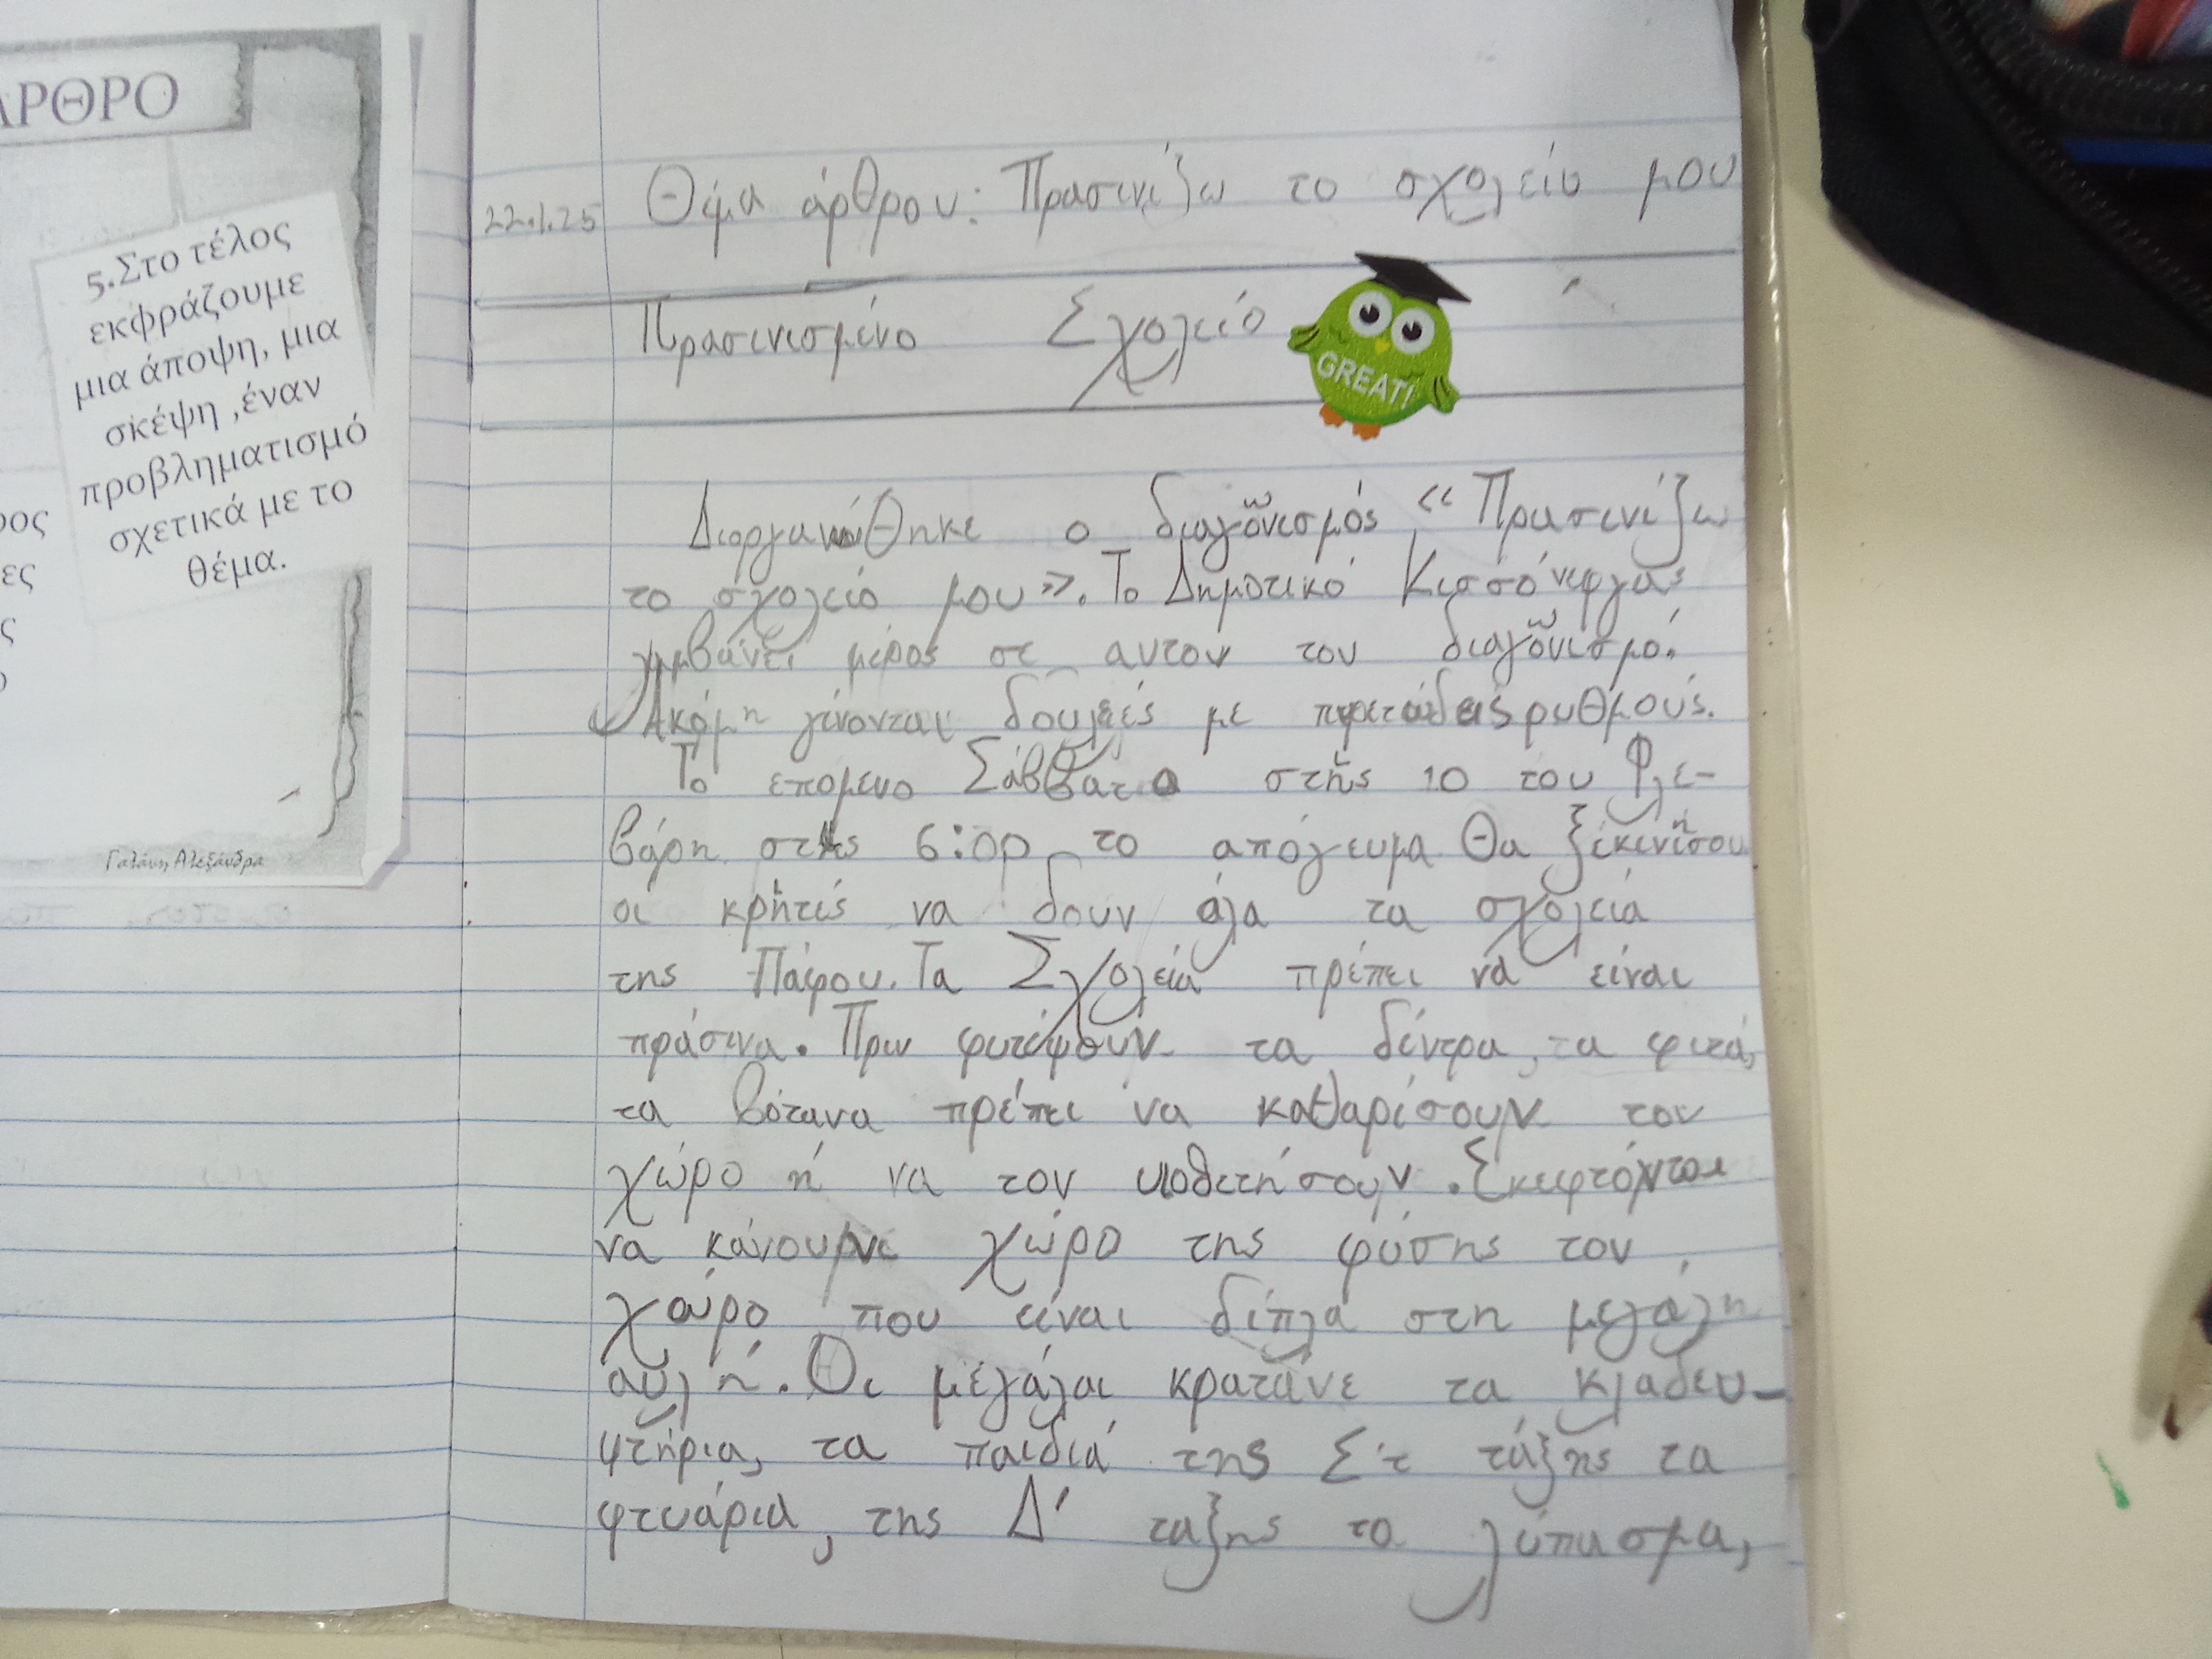 ΑΡΘΡΟ
5.Στο τέλος
εκφράζουμε
μια άποψη, μια
σκέψη ,έναν
προβληματισμό
σχετικά με το
θέμα.
ρος
ες
ς
Γαλάνη Αλεξάνδρα
22.1.25 Θέμα άρθρου: Πρασινίζω το σχολείο μου
Πρασινισμένο Σχολείο
GREAT!
Διοργανώθηκε ο διαγωνισμός «Πρασινίζω
το σχολείο μου». Το Δημοτικό Κισσόνεργας
λαμβάνει μέρος σε αυτον τον διαγωνισμό.
Ακόμη γίνονται δουλειές με πυρετώδεις ρυθμούς.
Το επομενο Σάββατο στης 10 του Φλε-
βάρη στις 6:00 το απόγευμα θα ξεκινήσου
οι κρητές να δουν όλα τα σχολεία
της Πάφου. Τα Σχολεία πρέπει να είναι
πράσινα. Πριν φυτέψουν τα δέντρα, τα φυτά,
τα βότανα πρέπει να καθαρίσουν τον
χώρο ή να τον υιοθετήσουν. Σκεφτόνται
να κάνουνε χώρο της φύσης τον
χώρο που είναι δίπλα στη μεγάλη
αυλή. Οι μεγάλοι κρατάνε τα κλαδευ-
τήρια, τα παιδιά της Στ τάξης τα
φτυάρια, της Δ' ταξης το λίπασμα,